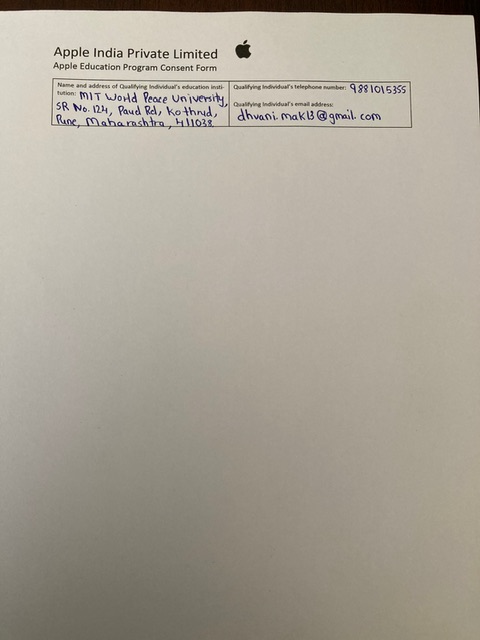 Apple India Private Limited
Apple Education Program Consent Form
Name and address of Qualifying Individual's education insti-
tution: MIT World Peace University,
SR No. 124, Paud Rd, Kothrud,
Pune, Maharashtra, 411038
Qualifying Individual's telephone number: 9881015355
Qualifying Individual's email address:
dhvani.mak13@gmail.com